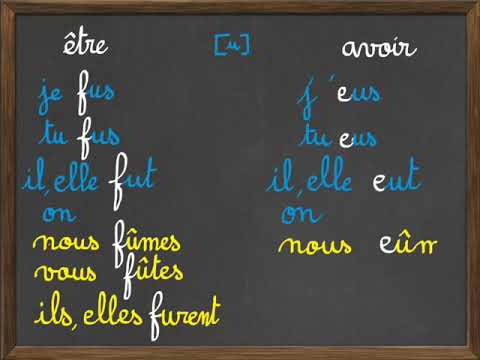 être [u] avoir
je fus
tu fus
il, elle fut
on
nous fûmes
vous fûtes
ils, elles furent
j'eus
tu eus
il, elle eut
on
nous eûm